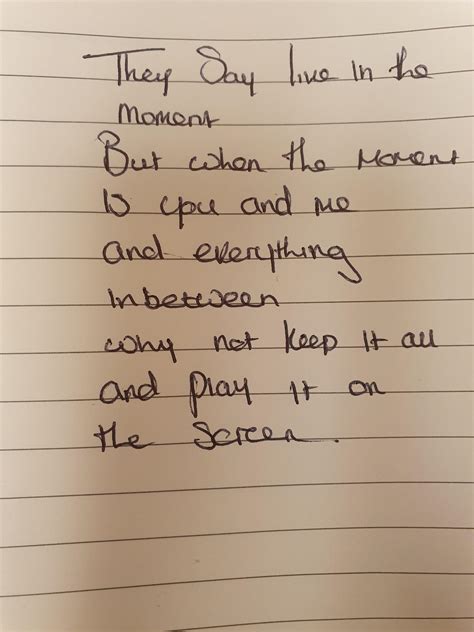 They Say live in the
Moment
But when the Moment
Is you and me
and everything
Inbetween
why not keep It all
and play It on
the Screen.